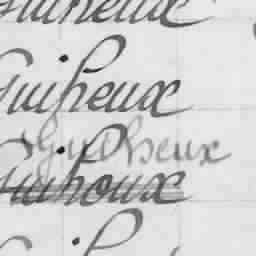 Guiheux
Guiheux
Guilheux
Guihoux